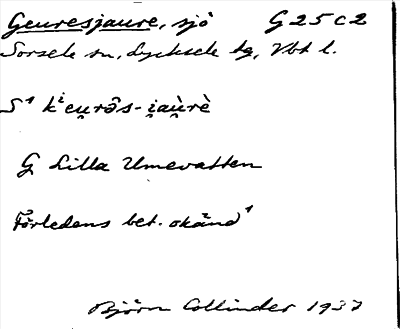 Geuresjaure, sjö G 25 c 2
Sorsele sn, Lycksele lg, Vbt l.
S¹ kⁱeu̯rə̂s-i̯au̯rè
G Lilla Umevatten
Förledens bet. okänd¹
Björn Collinder 1937